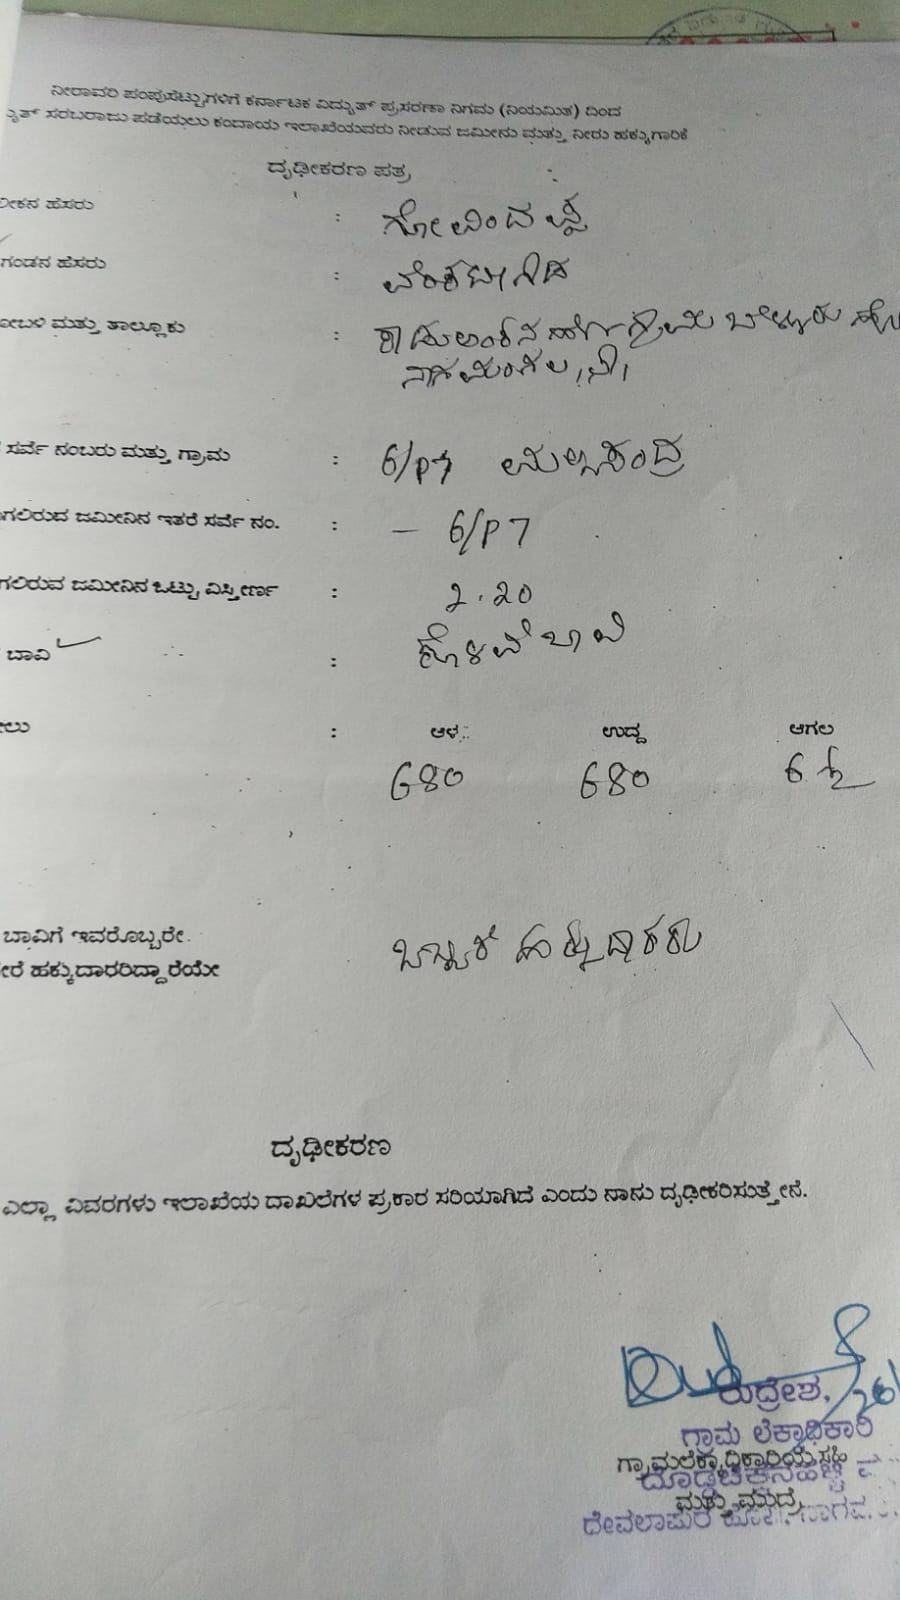 ನೀರಾವರಿ ಪಂಪುಸೆಟ್ಟುಗಳಿಗೆ ಕರ್ನಾಟಕ ವಿದ್ಯುತ್ ಪ್ರಸರಣಾ ನಿಗಮ (ನಿಯಮಿತ) ದಿಂದ
್ಯುತ್ ಸರಬರಾಜು ಪಡೆಯಲು ಕಂದಾಯ ಇಲಾಖೆಯವರು ನೀಡುವ ಜಮೀನು ಮತ್ತು ನೀರು ಹಕ್ಕುಗಾರಿಕೆ
ದೃಢೀಕರಣ ಪತ್ರ
ಲೀಕನ ಹೆಸರು : ಗೋವಿಂದಪ್ಪ
ಗಂಡನ ಹೆಸರು :
ೋಬಳಿ ಮತ್ತು ತಾಲ್ಲೂಕು : ಗ್ರಾಮ ಬೆಳ್ಳೂರು ಹೋ
ನಾಗಮಂಗಲ
ಸರ್ವೆ ನಂಬರು ಮತ್ತು ಗ್ರಾಮ : 6/P7 ಮಲ್ಲಸಂದ್ರ
ಗಲಿರುವ ಜಮೀನಿನ ಇತರೆ ಸರ್ವೆ ನಂ. : – 6/P7
ಗಲಿರುವ ಜಮೀನಿನ ಒಟ್ಟು ವಿಸ್ತೀರ್ಣ : 2.20
ಬಾವಿ : ಕೊಳವೆ ಬಾವಿ
ೇಲು : ಆಳ ಉದ್ದ ಅಗಲ
680 680 6 ½
ಬಾವಿಗೆ ಇವರೊಬ್ಬರೇ
ೇರೆ ಹಕ್ಕುದಾರರಿದ್ದಾರೆಯೇ ಒಬ್ಬರೆ ಹಕ್ಕುದಾರರು
ದೃಢೀಕರಣ
ಎಲ್ಲಾ ವಿವರಗಳು ಇಲಾಖೆಯ ದಾಖಲೆಗಳ ಪ್ರಕಾರ ಸರಿಯಾಗಿದೆ ಎಂದು ನಾನು ದೃಢೀಕರಿಸುತ್ತೇನೆ.
ರುದ್ರೇಶ,
ಗ್ರಾಮ ಲೆಕ್ಕಾಧಿಕಾರಿ
ಗ್ರಾಮಲೆಕ್ಕಾಧಿಕಾರಿಯ ಸಹಿ
ಮತ್ತು ಮುದ್ರೆ
ದೇವಲಾಪುರ